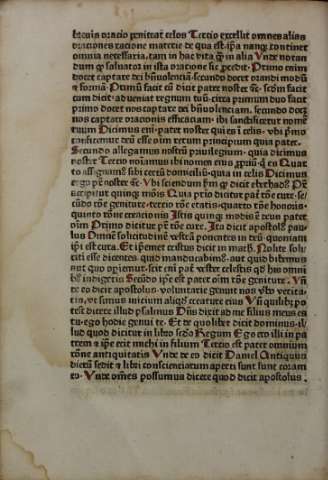 breuis oracio penitrat celos Tercio excellit omnes alias
oraciones racione materie de qua est ip̄a nanqꝫ continet
omnia necessaria, tam in hac vita qꝫ in alia Unde notan
dum qꝫ saluator in ista oracione sic ꝓcedit. Primo enim
docet captare dei bn̄iuolenciā. secundo docet orandi modū
& formā. Primū facit cū dicit pater noster &c. scd̄m facit
cum dicit. adueniat regnum tuū. circa primum duo facit
primo docet nos captare dei beniuolenciam. secundo docꝫ
nos captare oracionis efficaciam. ibi sanctificetur nomē
tuum Dicimus eni. pater noster qui es ī celis. vbi pͥmo
confitemur deū esse oīm rerum principium quia pater.
Secundo allegamus nostrū priuilegium. quia dicimus
noster Tercio notamus ibi nomen eius qui es Quar
to assignamꝰ sibi certū domiciliū. quia in celis Dicimus
ergo pr̄ noster &c. Ubi sciendum
accipitur quinqꝫ mōis Qui prio dicitur pat̄ rōne cure. se/
cūdo rōne geniture. tercio rōne etatis quarto rōne honoris.
quinto rōne creacionis Istis quinqꝫ modis ē deus pater.
oīm Primo dicitur pr̄ rōne cure. Ita dicit apostolꝰ pau/
lus Omnē solicitudinē vestrā ponentes in deū. quoniam
ip̄i est cura. Et ip̄emet cristus dicit in math. Nolite soli/
citi esse dicentes. quid manducabimꝰ. aut quid bibemus
aut quo opiemur. scit eni pat̄ vester celestis qꝫ hijs omni
bꝰ indigetis Secūdo ip̄e est pater oīm rōne geniture. Un̄
de eo dicit apostolus. voluntarie genuit nos v̄bo verita/
tis, vt simus inicium aliqꝫ creature eius Un̄ quilibꝫ po
test dicere illud psalmus Dn̄s dixit ad me filius meus es
tu. ego hodie genui te. Et de quolibet dicit dominus. il/
lud quod dicitur in libro scd̄o Regum Ego ero illi in pa
trem & ip̄e erit michi in filium Tercio est pater omnium
rōne antiquitatis Unde de eo dicit Daniel Antiquus
dierū sedit & libri conscienciarum aperti sunt sunt coram
eo. Unde om̄es possumus dicere quod dicit apostolus.